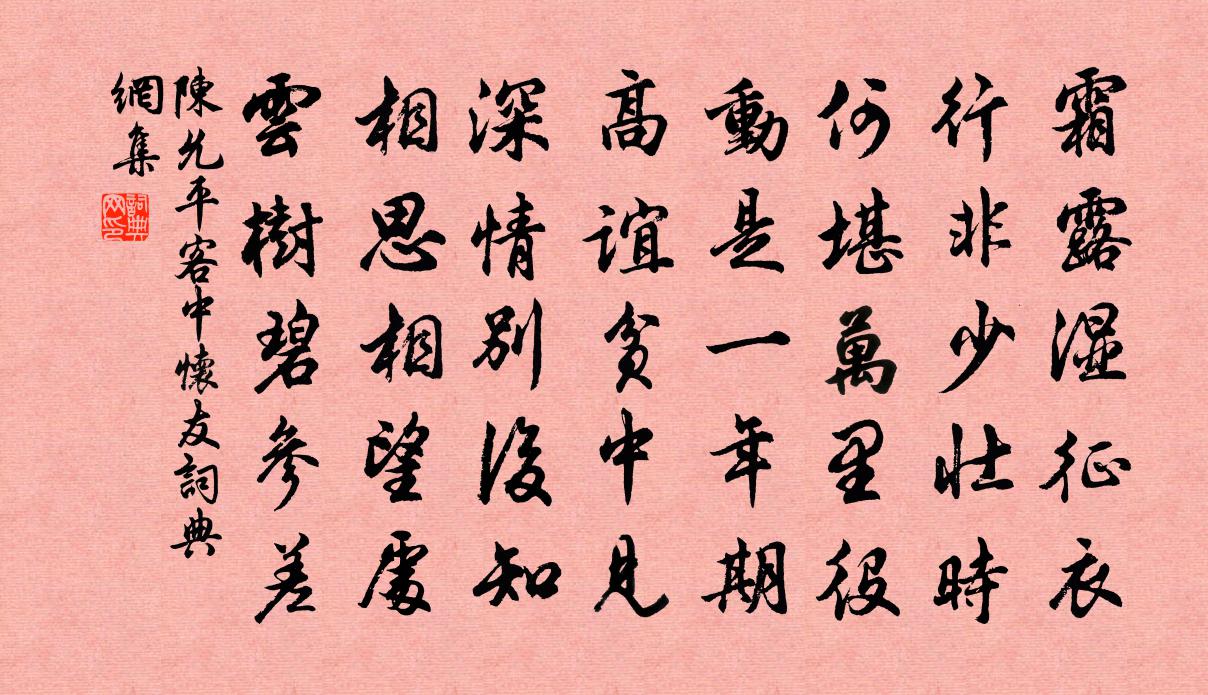 霜露湿征衣
行非少壯時
何堪萬里役
動是一年期
高誼貧中見
深情別後知
相思相望處
雲樹碧參差
陳允平客中懷友詞典
網集
詞典
网印